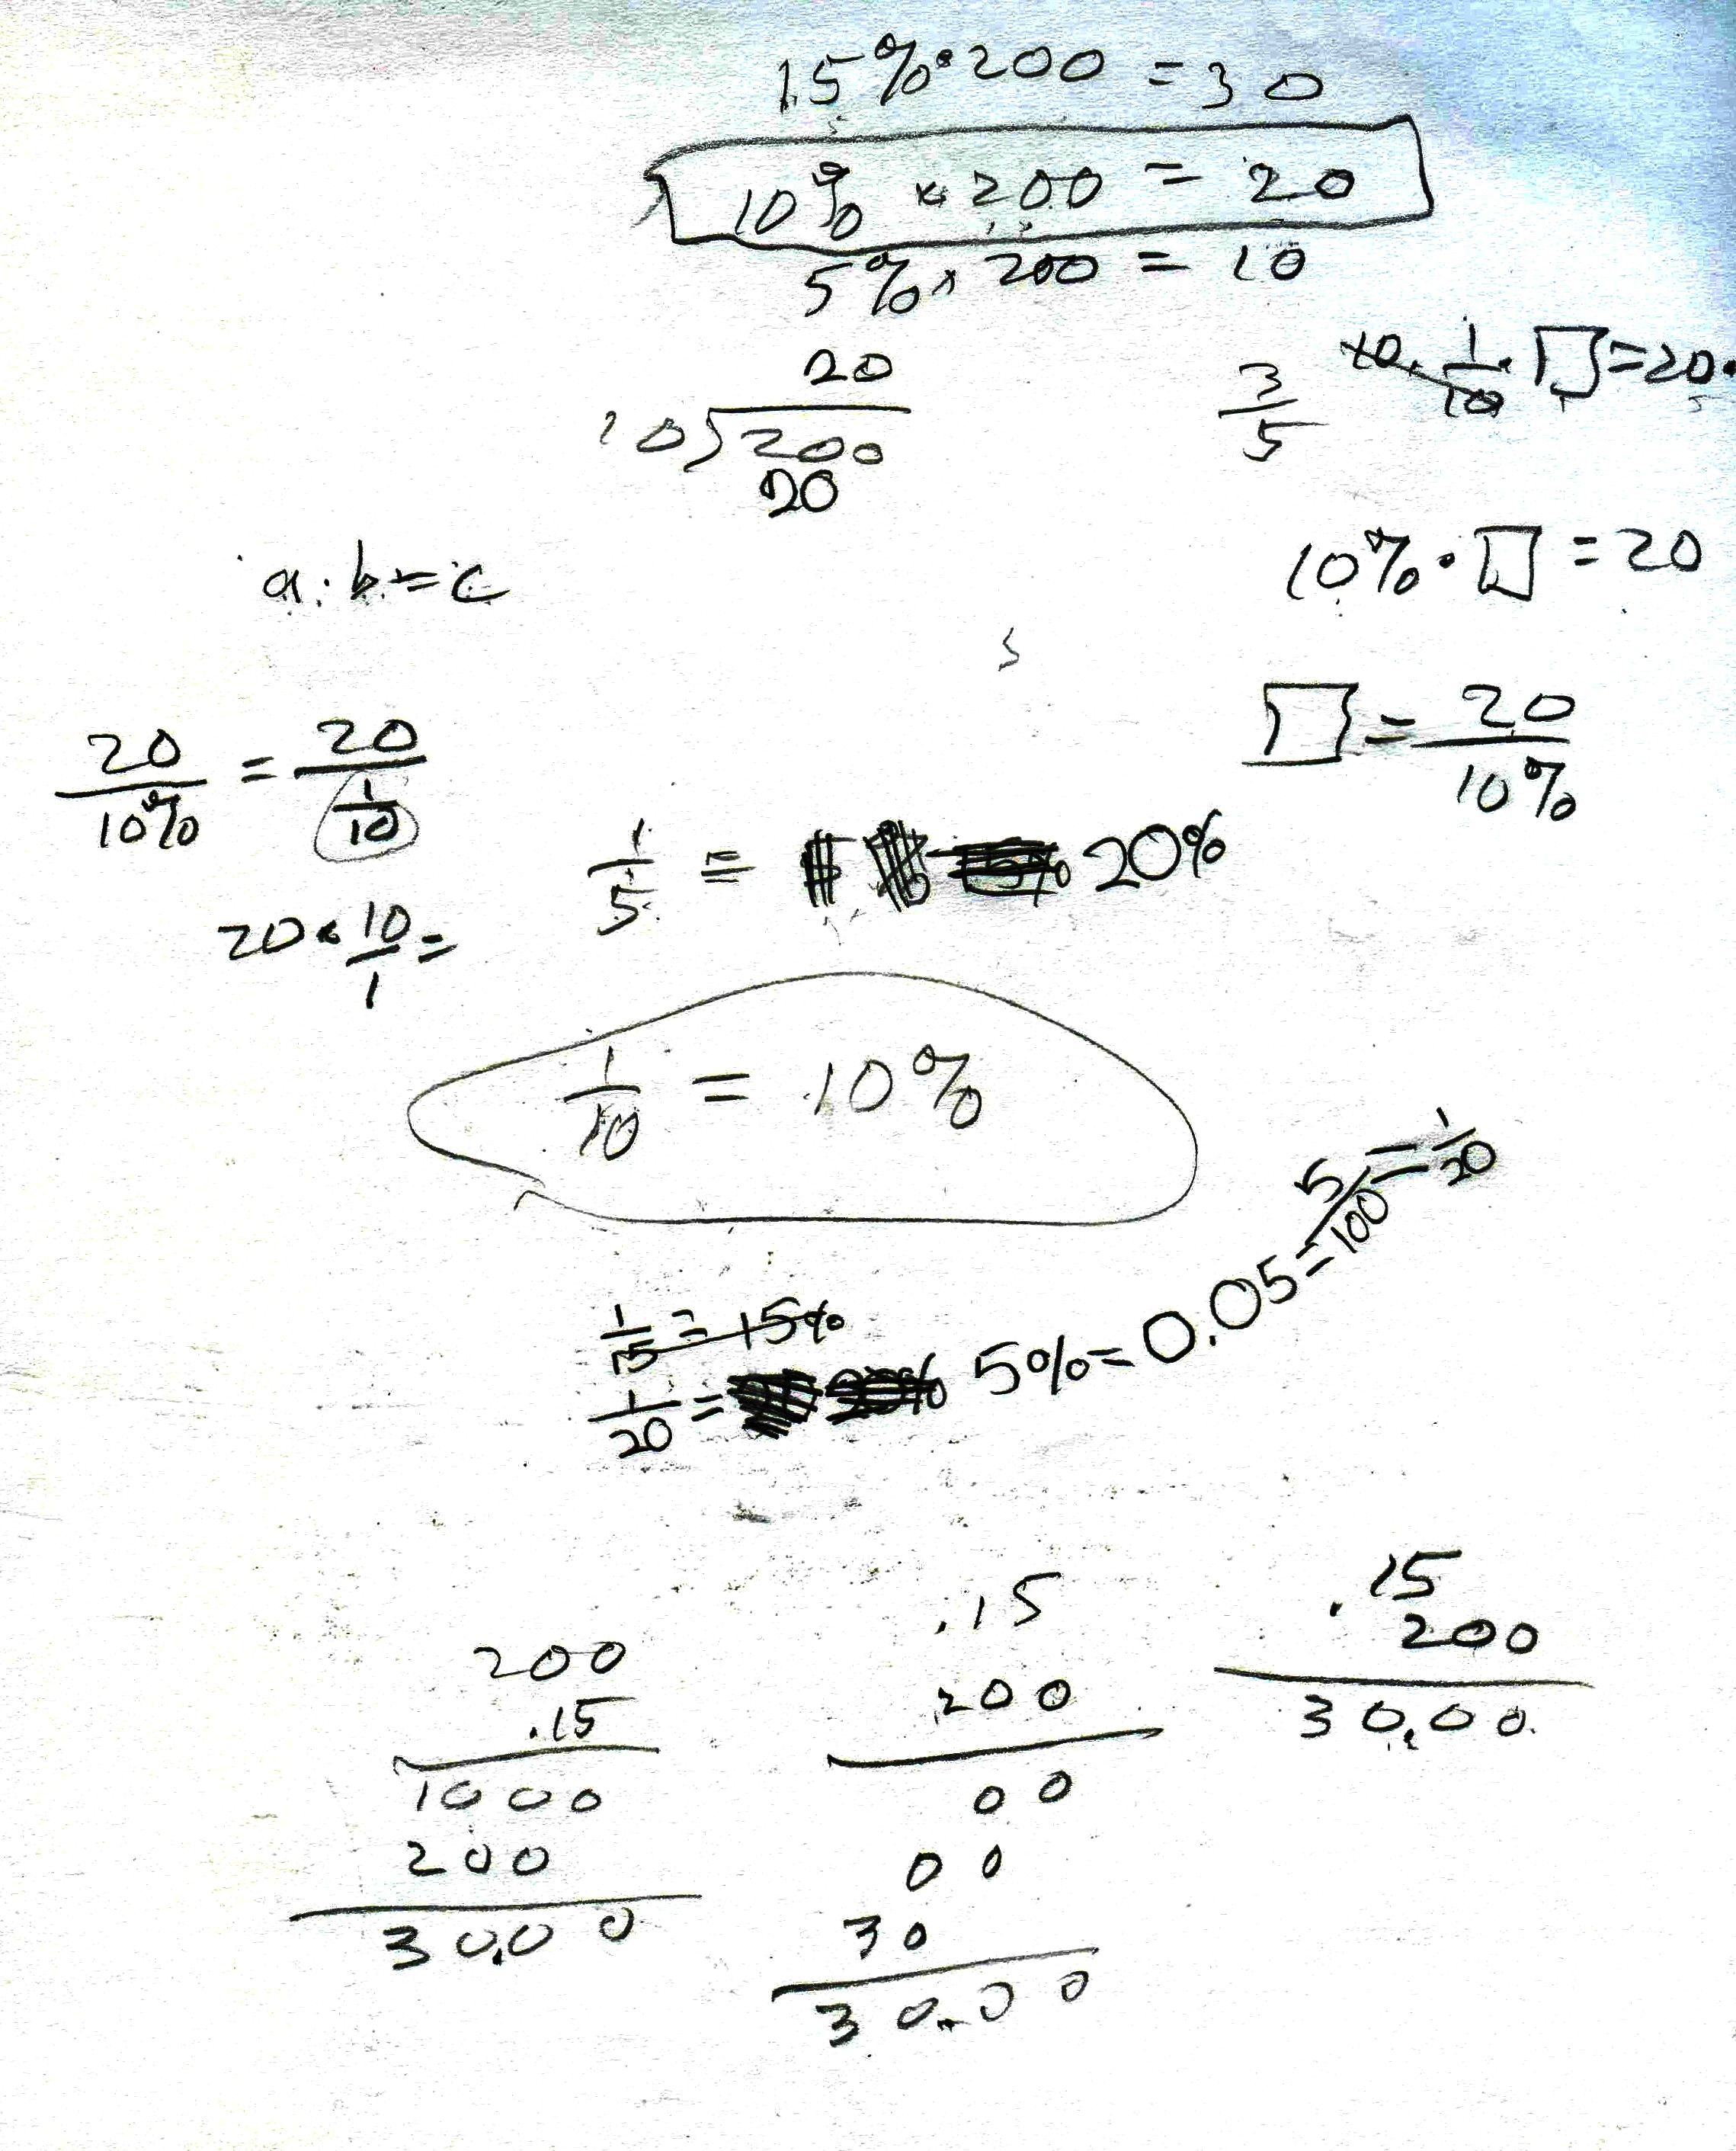 15% · 200 = 30
10% × 200 = 20
5% × 200 = 10
20
10)200
20
3/5
10 · 1/10 · □ = 20 ·
10% · □ = 20
a · b = c
□ = 20/10%
20/10% = 20/(1/10)
20 × 10/1 =
1/5 = 20%
1/10 = 10%
1/15 = 15%
1/20 = 5% = 0.05 = 5/100 = 1/20
200
.15
1000
200
30.00
.15
200
00
00
30
30.00
.15
200
30.00